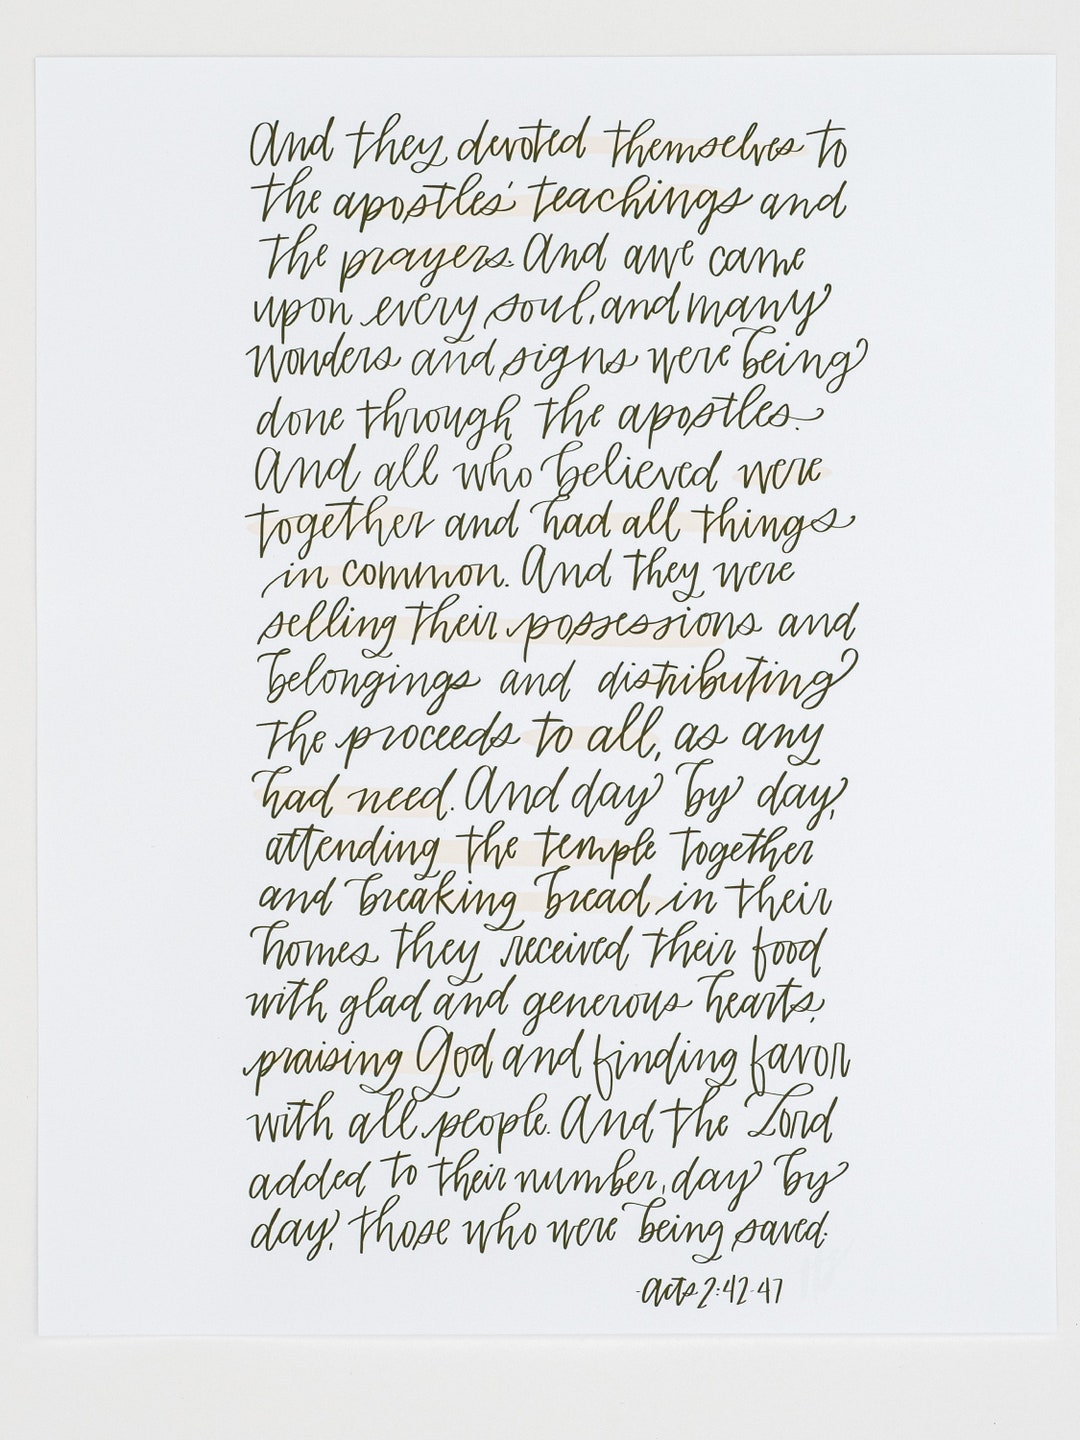 And they devoted themselves to
the apostles' teachings and
the prayers. And awe came
upon every soul, and many
wonders and signs were being
done through the apostles.
And all who believed were
together and had all things
in common. And they were
selling their possessions and
belongings and distributing
the proceeds to all, as any
had need. And day by day,
attending the temple together
and breaking bread in their
homes they received their food
with glad and generous hearts,
praising God and finding favor
with all people. And the Lord
added to their number, day by
day, those who were being saved.
-Acts 2:42-47